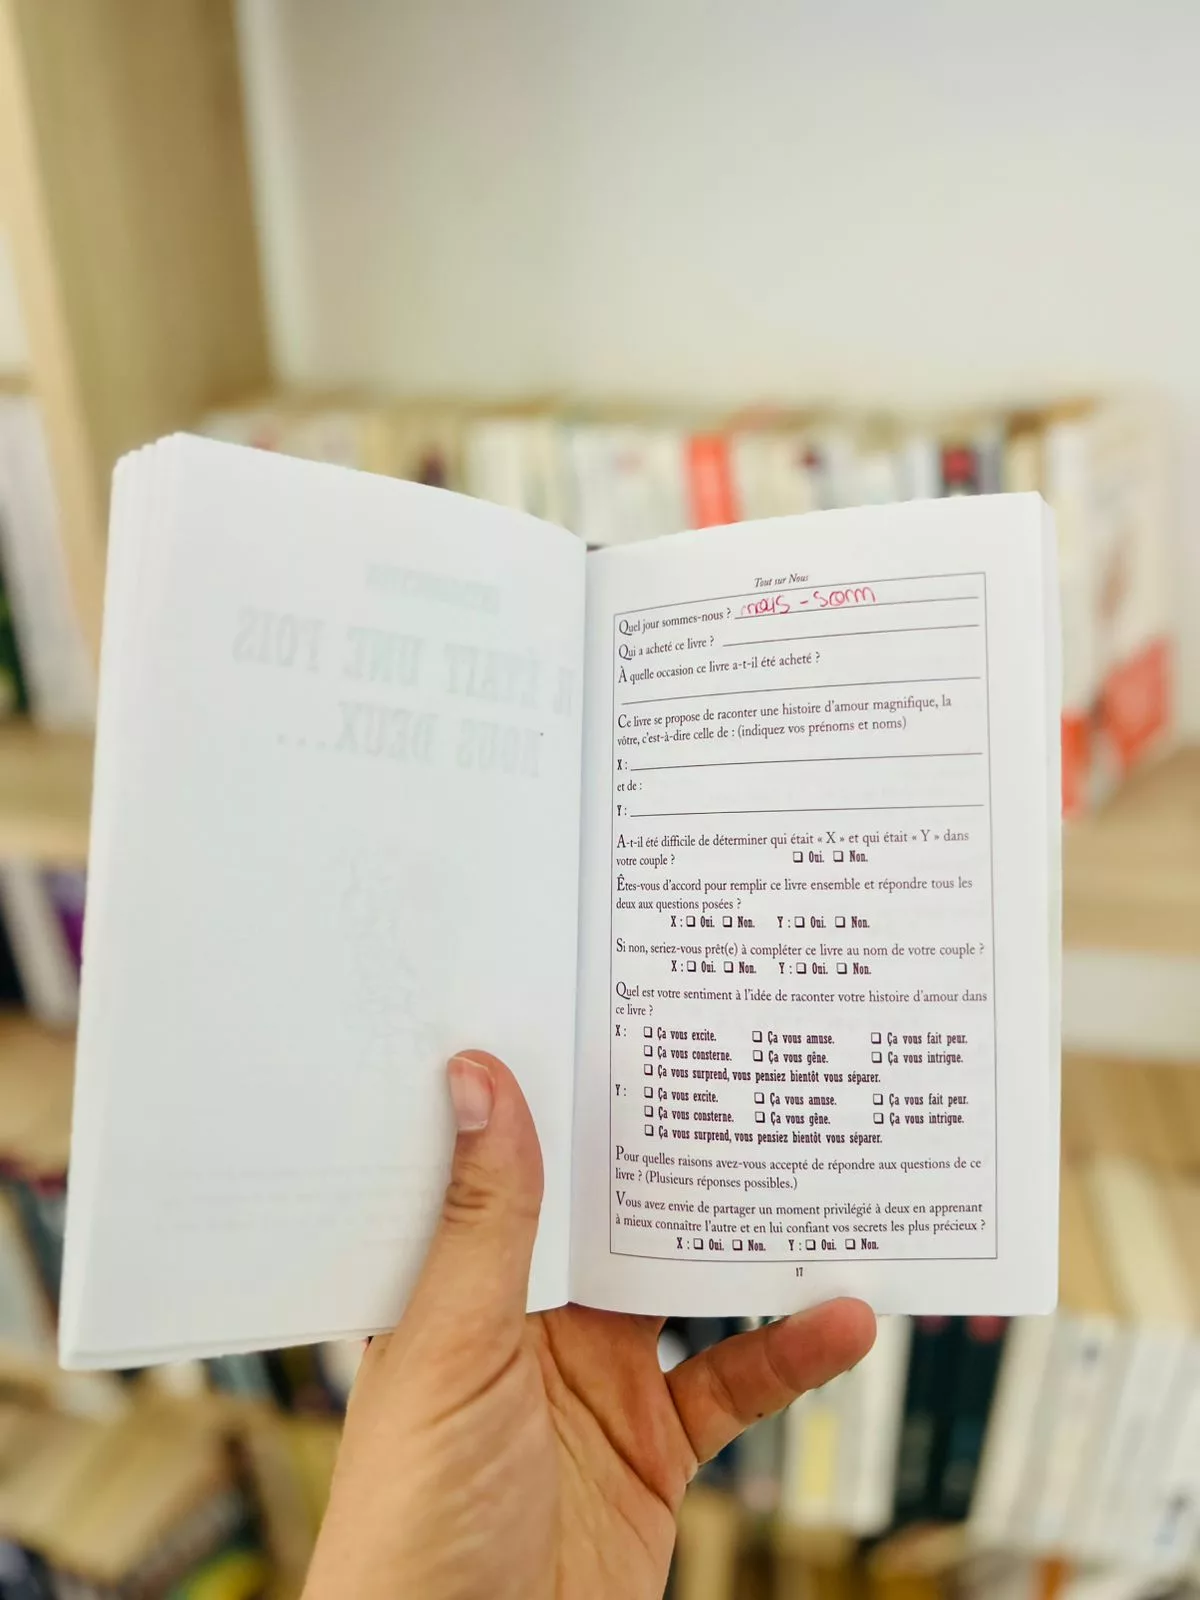 IL ÉTAIT UNE FOIS
NOUS DEUX...
Tout sur Nous
Quel jour sommes-nous ?
Qui a acheté ce livre ?
À quelle occasion ce livre a-t-il été acheté ?
Ce livre se propose de raconter une histoire d'amour magnifique, la
vôtre, c'est-à-dire celle de : (indiquez vos prénoms et noms)
X :
et de :
Y :
A-t-il été difficile de déterminer qui était « X » et qui était « Y » dans
votre couple ? ❏ Oui. ❏ Non.
Êtes-vous d'accord pour remplir ce livre ensemble et répondre tous les
deux aux questions posées ?
X : ❏ Oui. ❏ Non. Y : ❏ Oui. ❏ Non.
Si non, seriez-vous prêt(e) à compléter ce livre au nom de votre couple ?
X : ❏ Oui. ❏ Non. Y : ❏ Oui. ❏ Non.
Quel est votre sentiment à l'idée de raconter votre histoire d'amour dans
ce livre ?
X : ❏ Ça vous excite. ❏ Ça vous amuse. ❏ Ça vous fait peur.
❏ Ça vous consterne. ❏ Ça vous gêne. ❏ Ça vous intrigue.
❏ Ça vous surprend, vous pensiez bientôt vous séparer.
Y : ❏ Ça vous excite. ❏ Ça vous amuse. ❏ Ça vous fait peur.
❏ Ça vous consterne. ❏ Ça vous gêne. ❏ Ça vous intrigue.
❏ Ça vous surprend, vous pensiez bientôt vous séparer.
Pour quelles raisons avez-vous accepté de répondre aux questions de ce
livre ? (Plusieurs réponses possibles.)
Vous avez envie de partager un moment privilégié à deux en apprenant
à mieux connaître l'autre et en lui confiant vos secrets les plus précieux ?
X : ❏ Oui. ❏ Non. Y : ❏ Oui. ❏ Non.
17